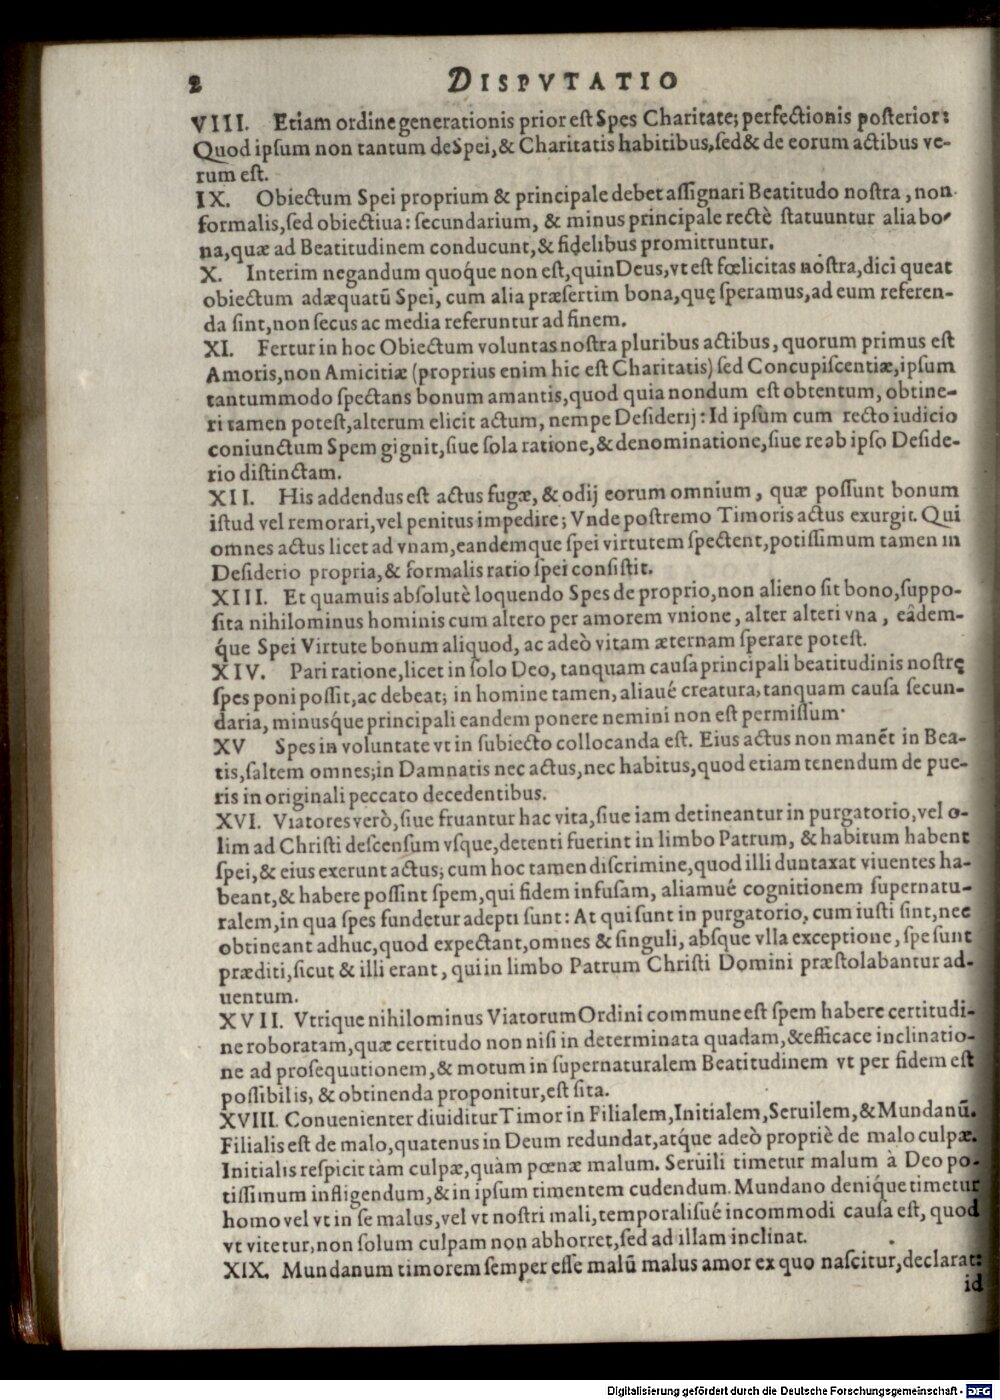 2 DISPVTATIO
VIII. Etiam ordine generationis prior est Spes Charitate; perfectionis posterior:
Quod ipsum non tantum de Spei, & Charitatis habitibus, sed & de eorum actibus ve-
rum est.
IX. Obiectum Spei proprium & principale debet assignari Beatitudo nostra, non
formalis, sed obiectiua: secundarium, & minus principale rectè statuuntur alia bo-
na, quæ ad Beatitudinem conducunt, & fidelibus promittuntur.
X. Interim negandum quoque non est, quin Deus, vt est fœlicitas nostra, dici queat
obiectum adæquatũ Spei, cum alia præsertim bona, quę speramus, ad eum referen-
da sint, non secus ac media referuntur ad finem.
XI. Fertur in hoc Obiectum voluntas nostra pluribus actibus, quorum primus est
Amoris, non Amicitiæ (proprius enim hic est Charitatis) sed Concupiscentiæ, ipsum
tantummodo spectans bonum amantis, quod quia nondum est obtentum, obtine-
ri tamen potest, alterum elicit actum, nempe Desiderij: Id ipsum cum recto iudicio
coniunctum Spem gignit, siue sola ratione, & denominatione, siue re ab ipso Deside-
rio distinctam.
XII. His addendus est actus fugæ, & odij eorum omnium, quæ possunt bonum
istud vel remorari, vel penitus impedire; Vnde postremo Timoris actus exurgit. Qui
omnes actus licet ad vnam, eandemque spei virtutem spectent, potissimum tamen in
Desiderio propria, & formalis ratio spei consistit.
XIII. Et quamuis absolutè loquendo Spes de proprio, non alieno sit bono, suppo-
sita nihilominus hominis cum altero per amorem vnione, alter alteri vna, eâdem-
q́ue Spei Virtute bonum aliquod, ac adeò vitam æternam sperare potest.
XIV. Pari ratione, licet in solo Deo, tanquam causa principali beatitudinis nostrę
spes poni possit, ac debeat; in homine tamen, aliaué creatura, tanquam causa secun-
daria, minusq́ue principali eandem ponere nemini non est permissum.
XV Spes in voluntate vt in subiecto collocanda est. Eius actus non manẽt in Bea-
tis, saltem omnes; in Damnatis nec actus, nec habitus, quod etiam tenendum de pue-
ris in originali peccato decedentibus.
XVI. Viatores verò, siue fruantur hac vita, siue iam detineantur in purgatorio, vel o-
lim ad Christi descensum vsque, detenti fuerint in limbo Patrum, & habitum habent
spei, & eius exerunt actus; cum hoc tamen discrimine, quod illi duntaxat viuentes ha-
beant, & habere possint spem, qui fidem infusam, aliamué cognitionem supernatu-
ralem, in qua spes fundetur adepti sunt: At qui sunt in purgatorio, cum iusti sint, nec
obtineant adhuc, quod expectant, omnes & singuli, absque vlla exceptione, spe sunt
præditi, sicut & illi erant, qui in limbo Patrum Christi Domini præstolabantur ad-
uentum.
XVII. Vtrique nihilominus Viatorum Ordini commune est spem habere certitudi-
ne roboratam, quæ certitudo non nisi in determinata quadam, & efficace inclinatio-
ne ad prosequutionem, & motum in supernaturalem Beatitudinem vt per fidem est
possibilis, & obtinenda proponitur, est sita.
XVIII. Conuenienter diuiditur Timor in Filialem, Initialem, Seruilem, & Mundanũ.
Filialis est de malo, quatenus in Deum redundat, atq́ue adeò propriè de malo culpæ.
Initialis respicit tàm culpæ, quàm pœnæ malum. Seruili timetur malum à Deo po-
tissimum infligendum, & in ipsum timentem cudendum. Mundano deniq́ue timetur
homo vel vt in se malus, vel vt nostri mali, temporalisué incommodi causa est, quod
vt vitetur, non solum culpam non abhorret, sed ad illam inclinat.
XIX. Mundanum timorem semper esse malũ malus amor ex quo nascitur, declarat:
id
Digitalisierung gefördert durch die Deutsche Forschungsgemeinschaft - DFG